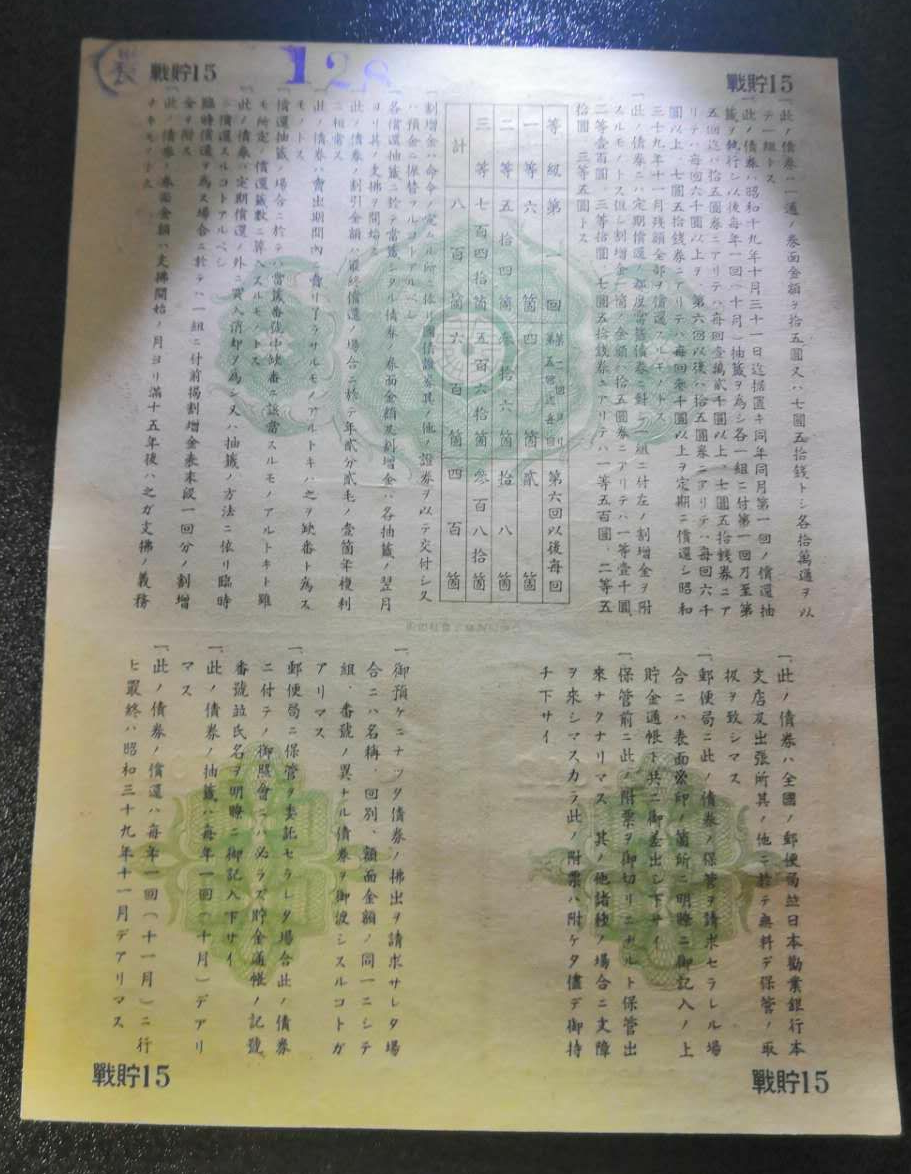 戰貯15
128
戰貯15
一、此ノ債券ハ一通ノ券面金額ヲ拾五圓又ハ七圓五拾錢トシ各拾萬通ヲ以
テ一組トス
一、此ノ債券ハ昭和十九年十月三十一日迄据置キ同年同月第一回ノ償還抽
籤ヲ執行シ以後每年一回(十月)抽籤ヲ爲シ各一組ニ付第一回乃至第
五回迄ハ拾五圓券ニアリテハ每回壹萬貳千圓以上、七圓五拾錢券ニア
リテハ每回六千圓以上ヲ、第六回以後ハ拾五圓券ニアリテハ每回六千
圓以上、七圓五拾錢券ニアリテハ每回參千圓以上ヲ定期ニ償還シ昭和
三十九年十一月殘額全部ヲ償還スルモノトス
一、此ノ債券ニハ定期償還ノ都度當籤債券ニ對シ一組ニ付左ノ割增金ヲ附
スルモノトス但シ割增金一箇ノ金額ハ拾五圓券ニアリテハ一等壹千圓、
二等壹百圓、三等拾圓、七圓五拾錢券ニアリテハ一等五百圓、二等五
拾圓、三等五圓トス
等級 第一回 第二回ヨリ第五回迄每回 第六回以後每回
一等 六箇 四箇 貳箇
二等 五拾四箇 參拾六箇 拾八箇
三等 七百四拾箇 五百六拾箇 參百八拾箇
計 八百箇 六百箇 四百箇
一、割增金ハ命令ノ定ムル所ニ依リ國債證券其ノ他ノ證券ヲ以テ交付シ又
ハ預金ニ振替フルコトアルベシ
一、各償還抽籤ニ於テ當籤シタル債券ノ券面金額及割增金ハ各抽籤ノ翌月
ヨリ其ノ支拂ヲ開始ス
一、此ノ債券ノ割引金額ハ最終償還ノ場合ニ於テ年貳分貳毛ノ壹箇年複利
ニ相當ス
一、此ノ債券ハ賣出期間內ニ賣リ了ラサルモノアルトキハ之ヲ缺番ト爲ス
モノトス
一、償還抽籤ノ場合ニ於テハ當籤番號中缺番ニ該當スルモノアルトキト雖
モ所定ノ償還籤數ニ算入スルモノトス
一、此ノ債券ハ定期償還ノ外ニ買入消却ヲ爲シ又ハ抽籤ノ方法ニ依リ臨時
ニ償還スルコトアルベシ
臨時償還ヲ爲ス場合ニ於テハ一組ニ付前揭割增金表末段一回分ノ割增
金ヲ附ス
一、此ノ債券ノ券面金額ハ支拂開始ノ月ヨリ滿十五年後ハ之ガ支拂ノ義務
ナキモノトス
一、此ノ債券ハ全國ノ郵便局竝日本勸業銀行本
支店及出張所其ノ他ニ於テ無料デ保管ノ取
扱ヲ致シマス
一、郵便局ニ此ノ債券ノ保管ヲ請求セラレル場
合ニハ表面ノ箇所ニ明瞭ニ御記入ノ上
貯金通帳ト共ニ御差出シ下サイ
一、保管前ニ此ノ附票ヲ御切リニナルト保管出
來ナクナリマス、其ノ他諸種ノ場合ニ支障
ヲ來シマスカラ此ノ附票ハ附ケタ儘デ御持
チ下サイ
一、御預ケニナツタ債券ノ拂出ヲ請求サレタ場
合ニハ名稱、回別、額面金額ノ同一ニシテ
組、番號ノ異ナル債券ヲ御渡シスルコトガ
アリマス
一、郵便局ニ保管ヲ委託セラレタ場合此ノ債券
ニ付テノ御照會ニハ必ラズ貯金通帳ノ記號
番號竝氏名ヲ明瞭ニ御記入下サイ
一、此ノ債券ノ抽籤ハ每年一回(十月)デアリ
マス
一、此ノ債券ノ償還ハ每年一回(十一月)ニ行
ヒ最終ハ昭和三十九年十一月デアリマス
戰貯15
戰貯15